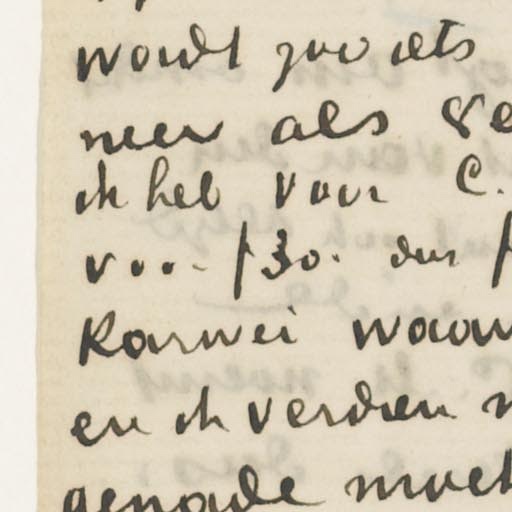 wordt zoo iets
meer als ge
ik heb voor C.
v... f 30. dus f
Karwei waar
en ik verdien
genade moet